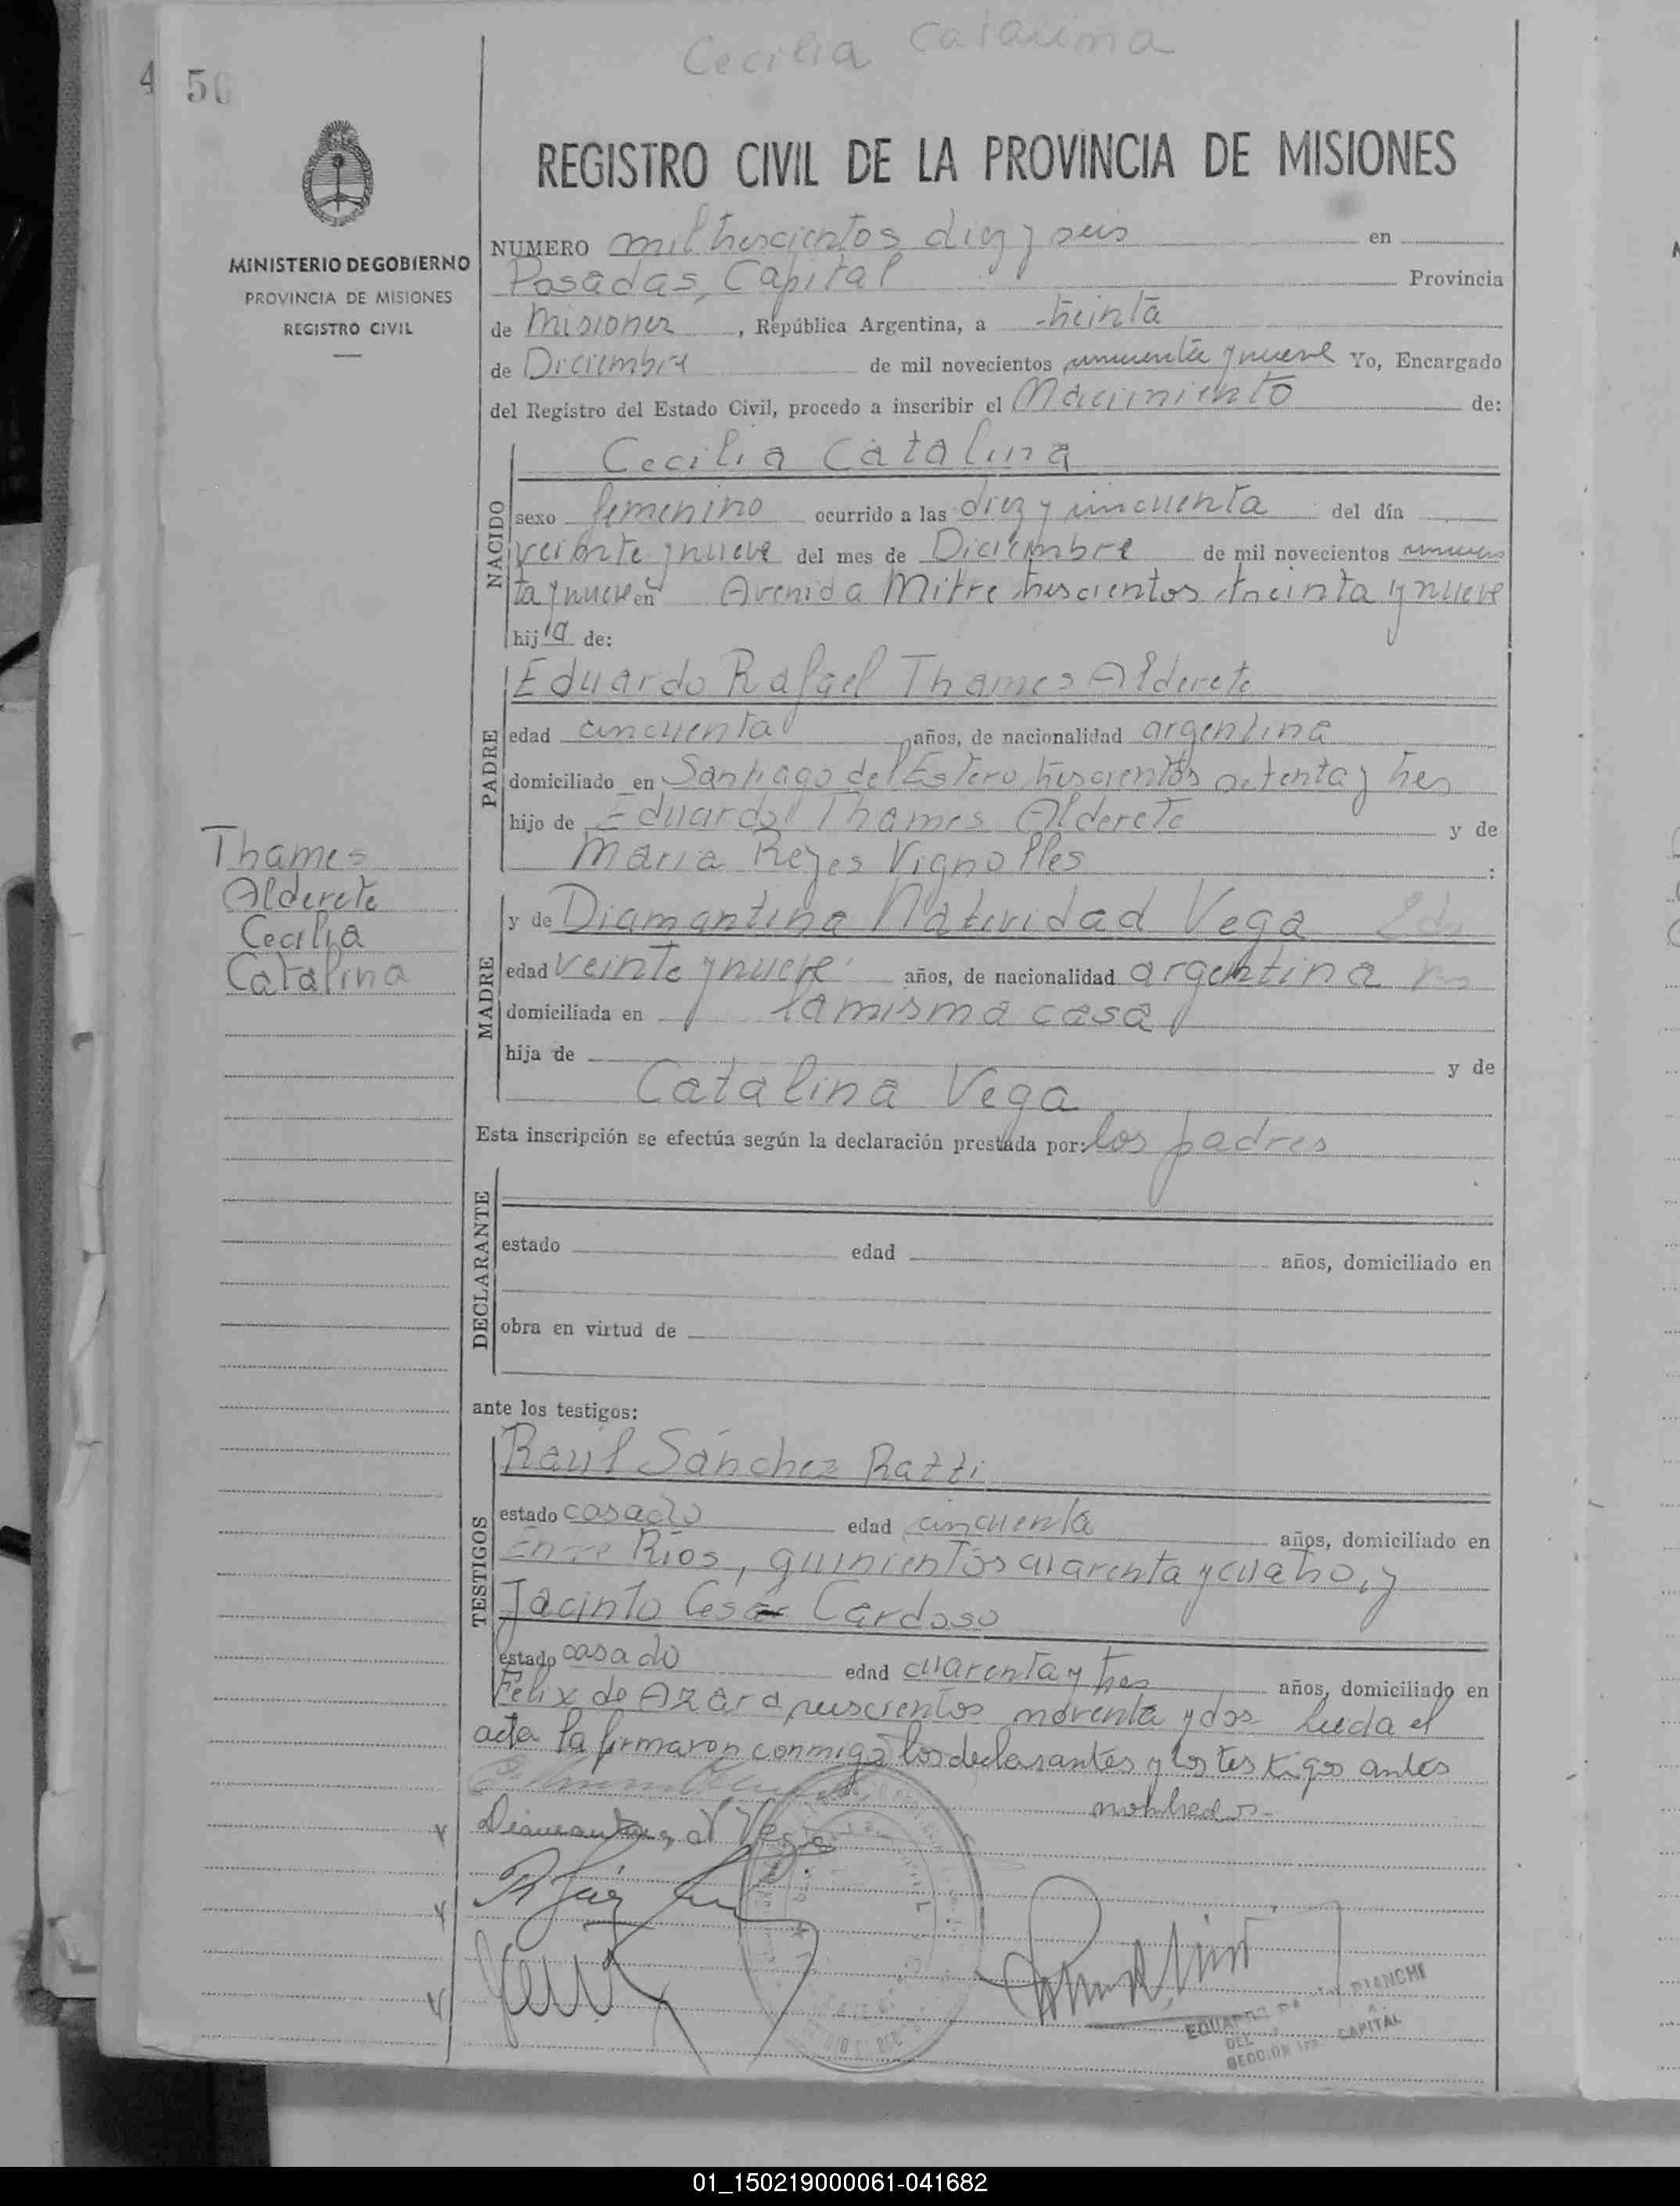 Cecilia Catalina
4 50
REGISTRO CIVIL DE LA PROVINCIA DE MISIONES
MINISTERIO DE GOBIERNO
PROVINCIA DE MISIONES
REGISTRO CIVIL
NUMERO mil trescientos diez y seis en
Posadas, Capital Provincia
de Misiones, República Argentina, a treinta
de Diciembre de mil novecientos cincuenta y nueve Yo, Encargado
del Registro del Estado Civil, procedo a inscribir el Nacimiento de:
NACIDO
Cecilia Catalina
sexo femenino ocurrido a las diez y cincuenta del día
veinte y nueve del mes de Diciembre de mil novecientos cincuen
ta y nueve en Avenida Mitre trescientos treinta y nueve
hija de:
PADRE
Eduardo Rafael Thames Alderete
edad cincuenta años, de nacionalidad argentina
domiciliado en Santiago del Estero trescientos setenta y tres
hijo de Eduardo Thames Alderete y de
Maria Reyes Vignolles :
Thames
Alderete
Cecilia
Catalina
MADRE
y de Diamantina Natividad Vega
edad veinte y nueve años, de nacionalidad argentina
domiciliada en la misma casa
hija de y de
Catalina Vega
Esta inscripción se efectúa según la declaración prestada por: los padres
DECLARANTE
estado edad años, domiciliado en
obra en virtud de
ante los testigos:
TESTIGOS
Raúl Sánchez Ratti
estado casado edad cincuenta años, domiciliado en
Entre Rios, quinientos cuarenta y cuatro, y
Jacinto Cesar Cardoso
estado casado edad cuarenta y tres años, domiciliado en
Felix de Azara novecientos noventa y dos Leida el
acta la firmaron conmigo los declarantes y los testigos antes
nombrados.
Diamantina N Vega
EDUARDO BIANCHI
DEL
SECCION 1ra. CAPITAL
01_150219000061-041682